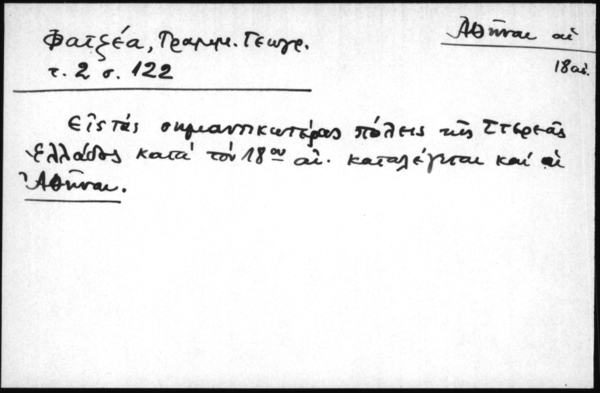 Φατζέα, Γραμμ. Γεωγρ.
τ. 2 σ. 122
Ἀθῆναι αἱ
18 αἰ.
Εἰς τὰς σημαντικωτέρας πόλεις τῆς Στερεᾶς
Ἑλλάδος κατὰ τὸν 18ον αἰ. καταλέγεται καὶ αἱ
Ἀθῆναι.